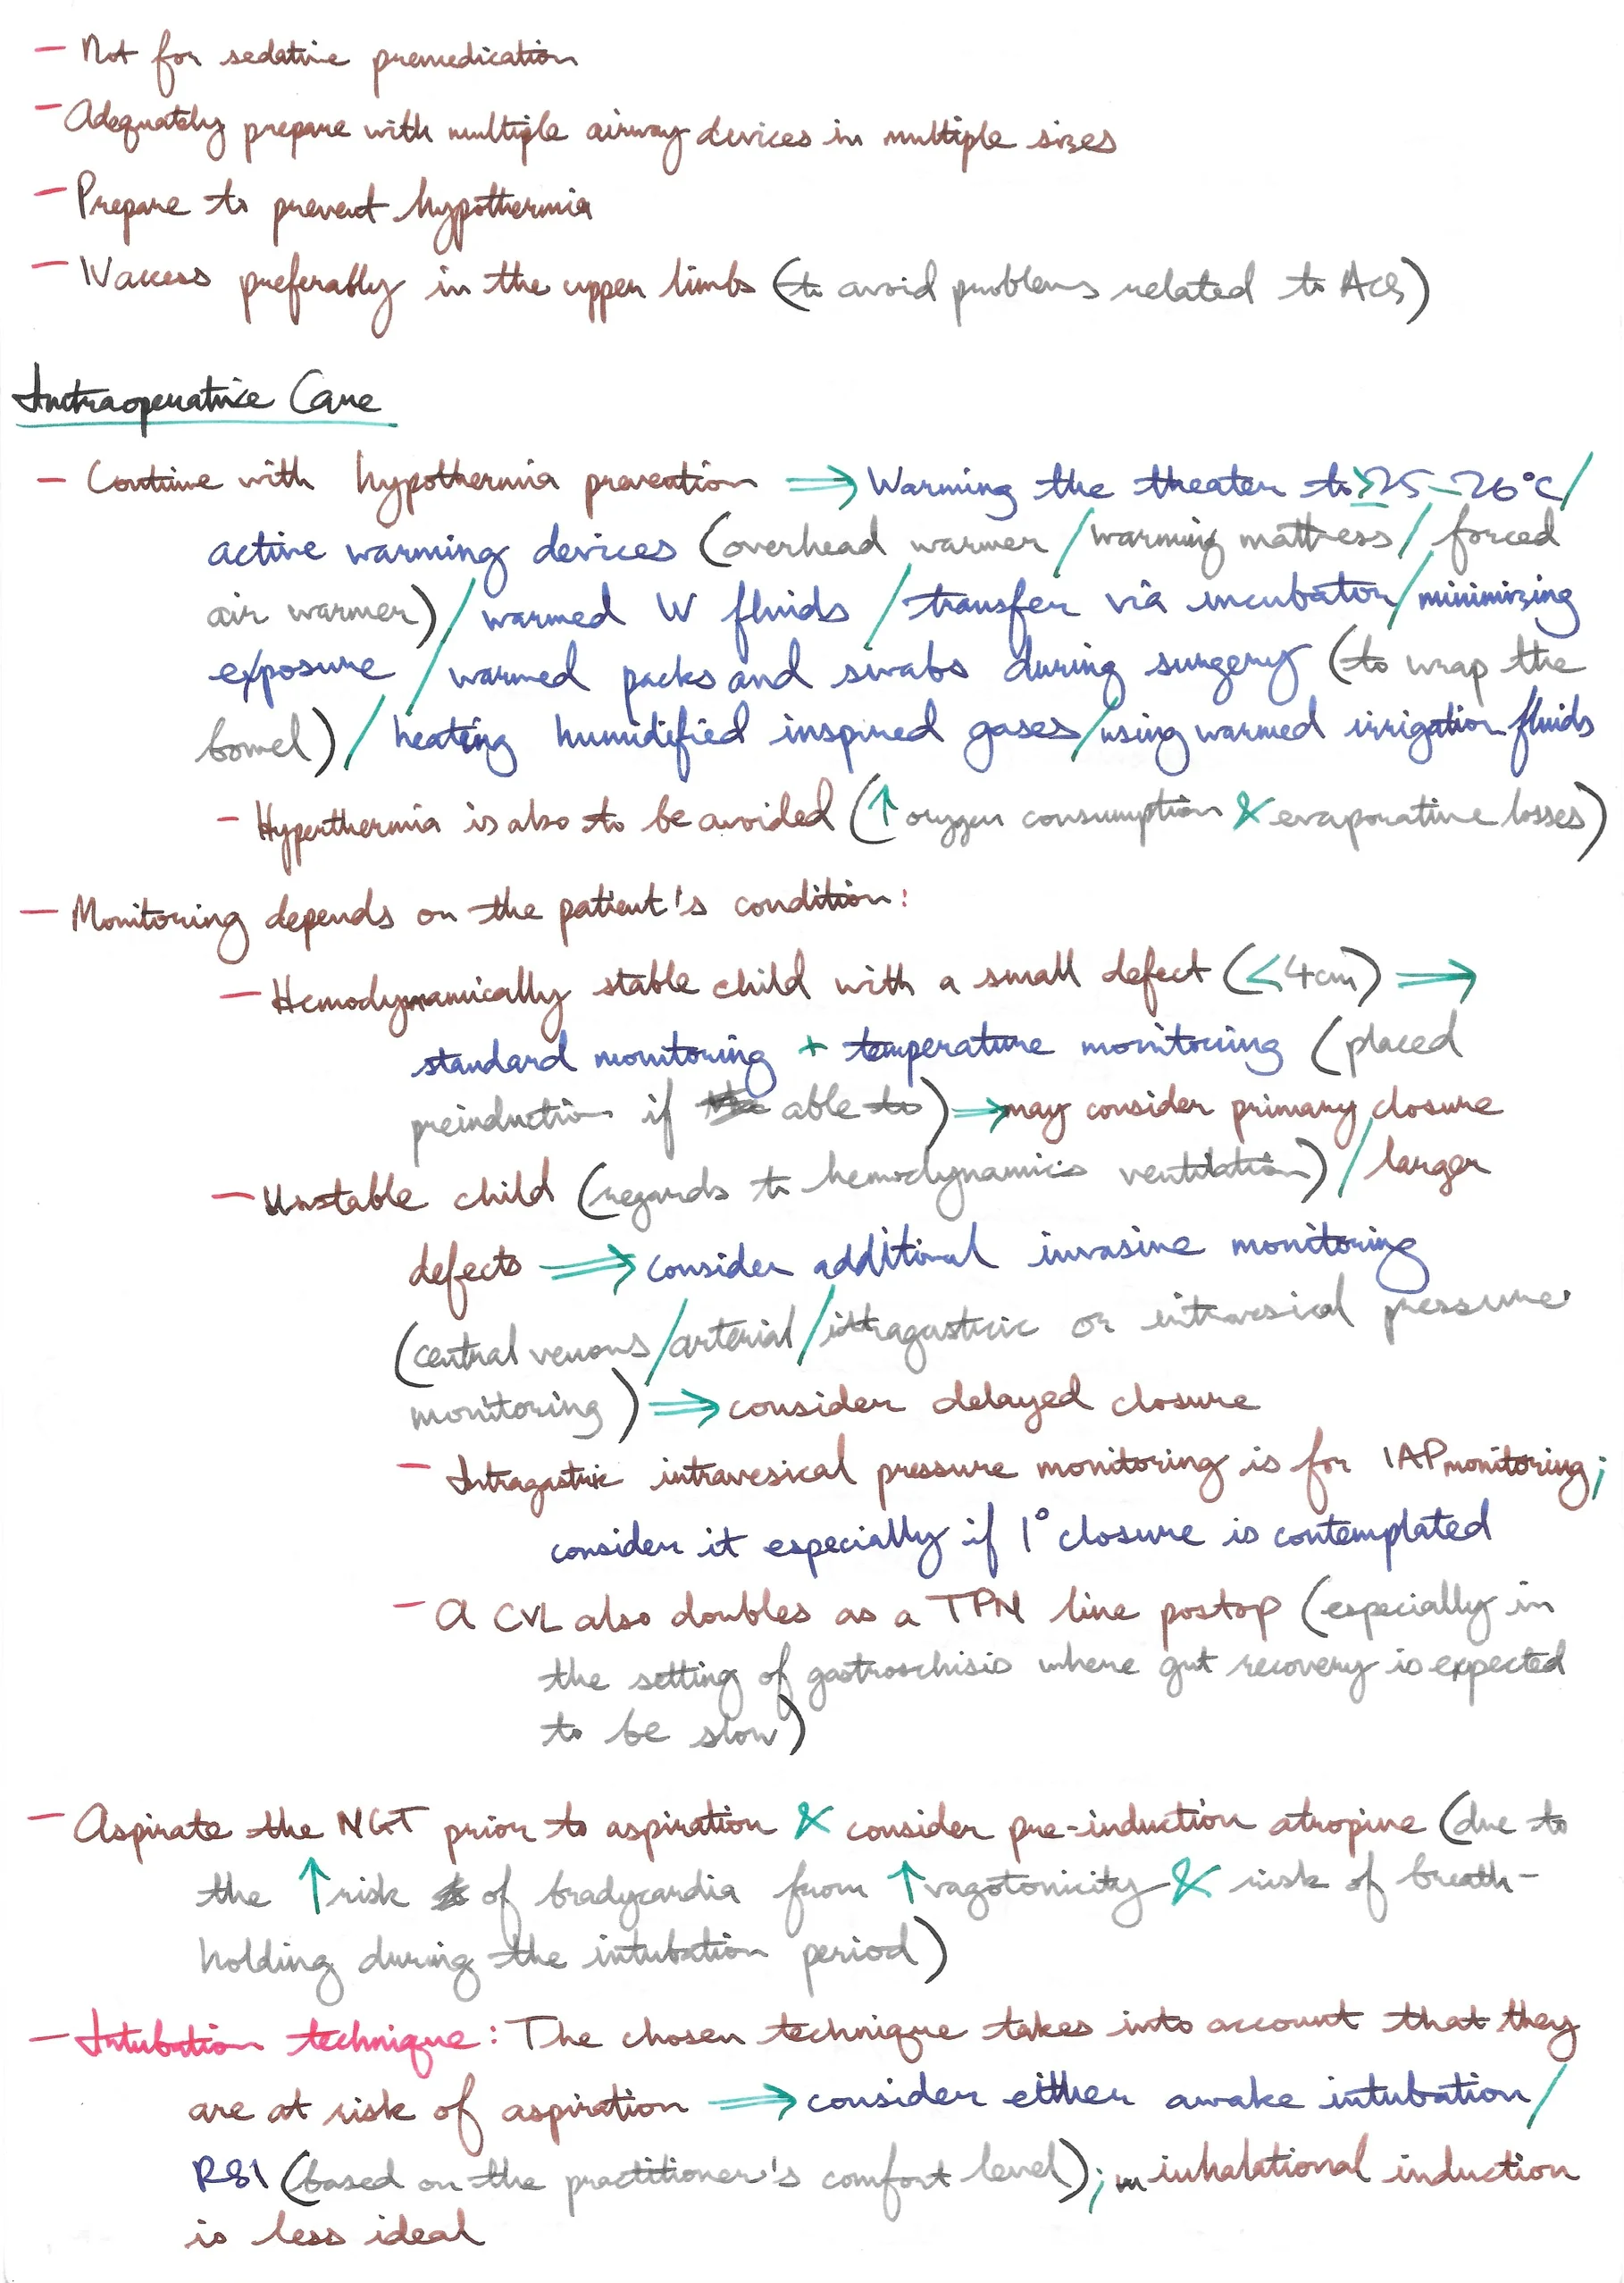 - Not for sedative premedication
- Adequately prepare with multiple airway devices in multiple sizes
- Prepare to prevent hypothermia
- IV access preferably in the upper limbs (to avoid problems related to ACS)
Intraoperative Care
- Continue with hypothermia prevention ⇒ Warming the theater to ≥25-26°C/
active warming devices (overhead warmer / warming mattress / forced
air warmer) / warmed IV fluids / transfer via incubator / minimizing
exposure / warmed packs and swabs during surgery (to wrap the
bowel) / heating humidified inspired gases / using warmed irrigation fluids
- Hyperthermia is also to be avoided (↑ oxygen consumption & evaporative losses)
- Monitoring depends on the patient's condition:
- Hemodynamically stable child with a small defect (<4cm) ⇒
standard monitoring + temperature monitoring (placed
preinduction if able to) ⇒ may consider primary closure
- Unstable child (regards to hemodynamics ventilation) / larger
defects ⇒ consider additional invasive monitoring
(central venous / arterial / intragastric or intravesical pressure
monitoring) ⇒ consider delayed closure
- Intragastric intravesical pressure monitoring is for IAP monitoring;
consider it especially if 1° closure is contemplated
- A CVL also doubles as a TPN line postop (especially in
the setting of gastroschisis where gut recovery is expected
to be slow)
- Aspirate the NGT prior to aspiration & consider pre-induction atropine (due to
the ↑ risk of bradycardia from ↑ vagotonicity & risk of breath-
holding during the intubation period)
- Intubation technique: The chosen technique takes into account that they
are at risk of aspiration ⇒ consider either awake intubation /
RSI (based on the practitioner's comfort level); inhalational induction
is less ideal